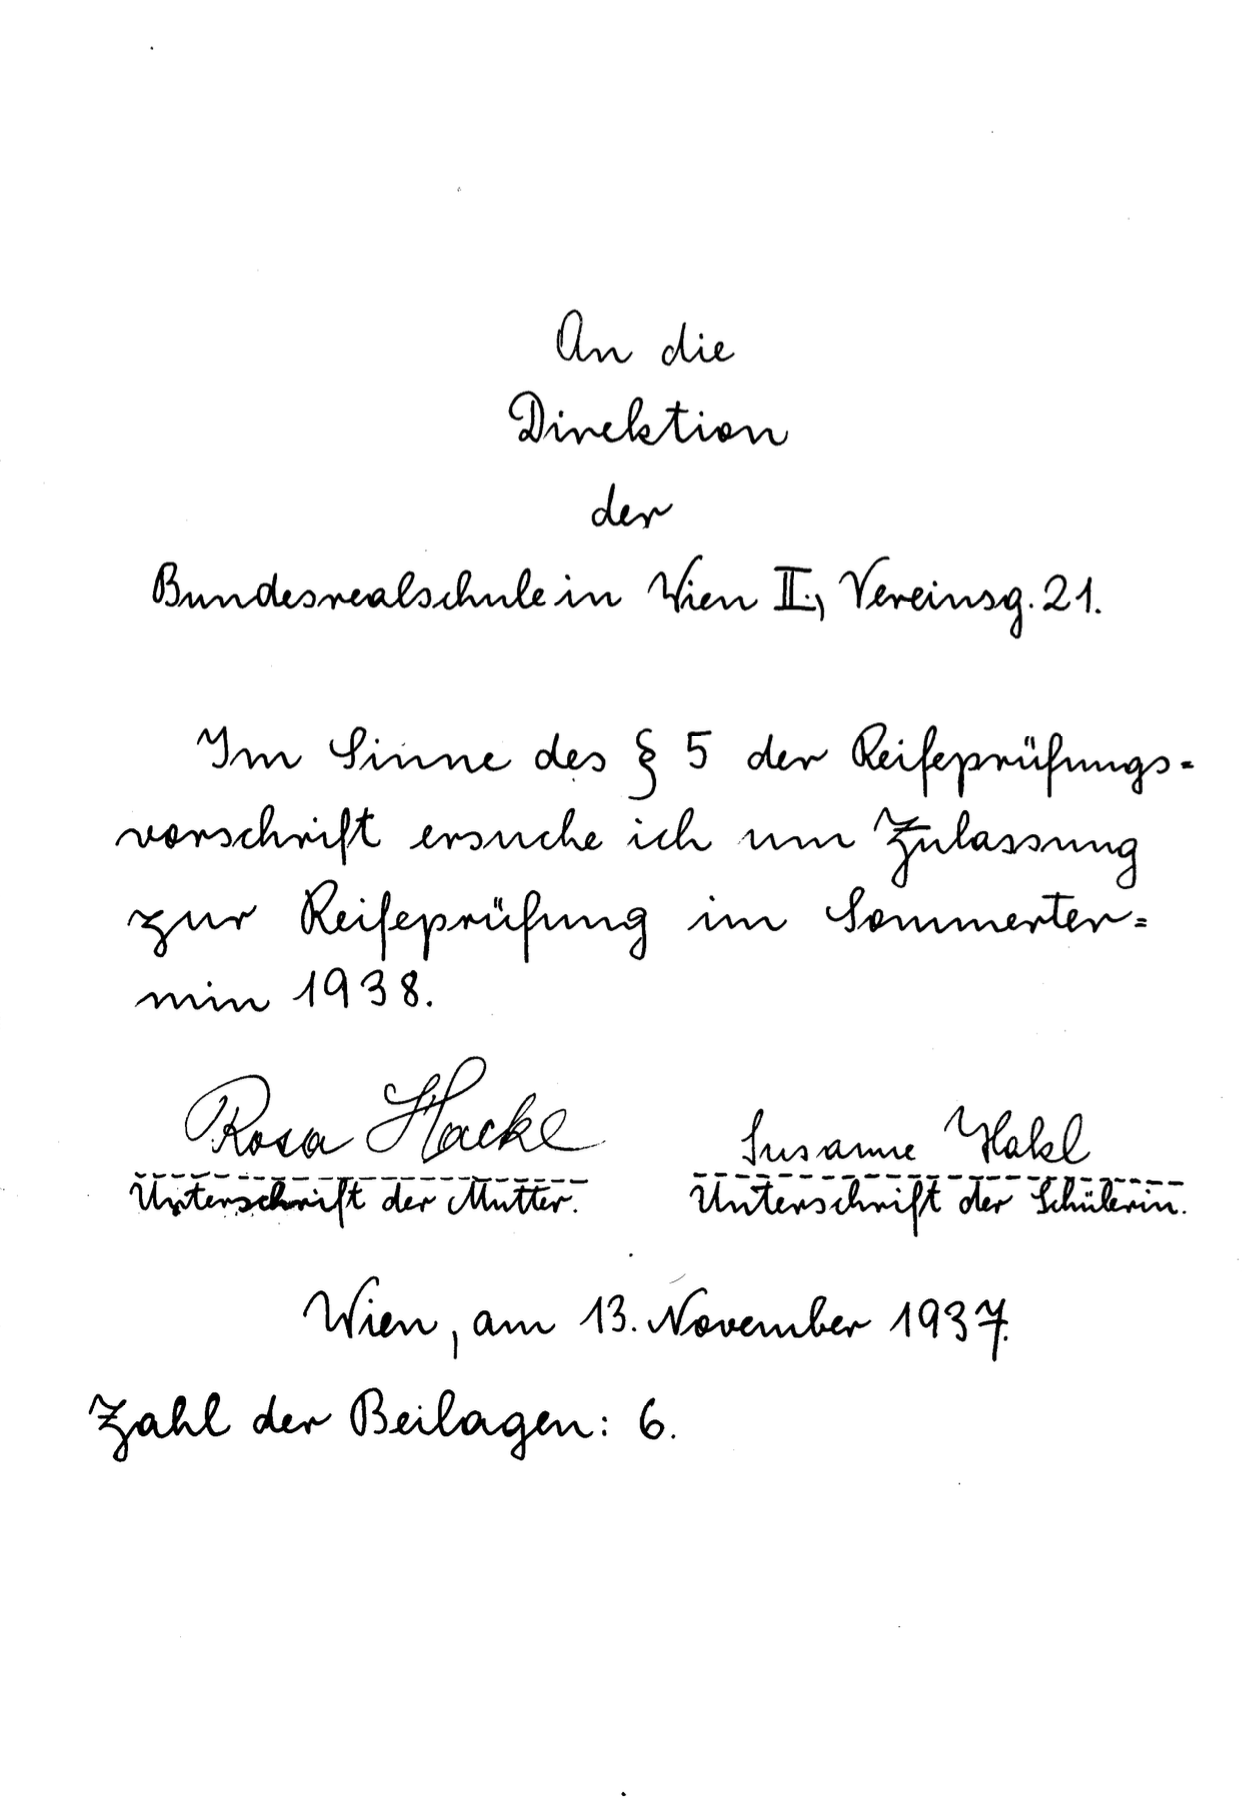 An die
Direktion
der
Bundesrealschule in Wien II., Vereinsg. 21.
Im Sinne des § 5 der Reifeprüfungs=
vorschrift ersuche ich um Zulassung
zur Reifeprüfung im Sommerter=
min 1938.
Rosa Hackl Susanne Hakl
Unterschrift der Mutter. Unterschrift der Schülerin.
Wien, am 13. November 1937.
Zahl der Beilagen: 6.